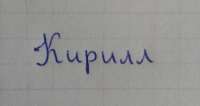 Кирилл